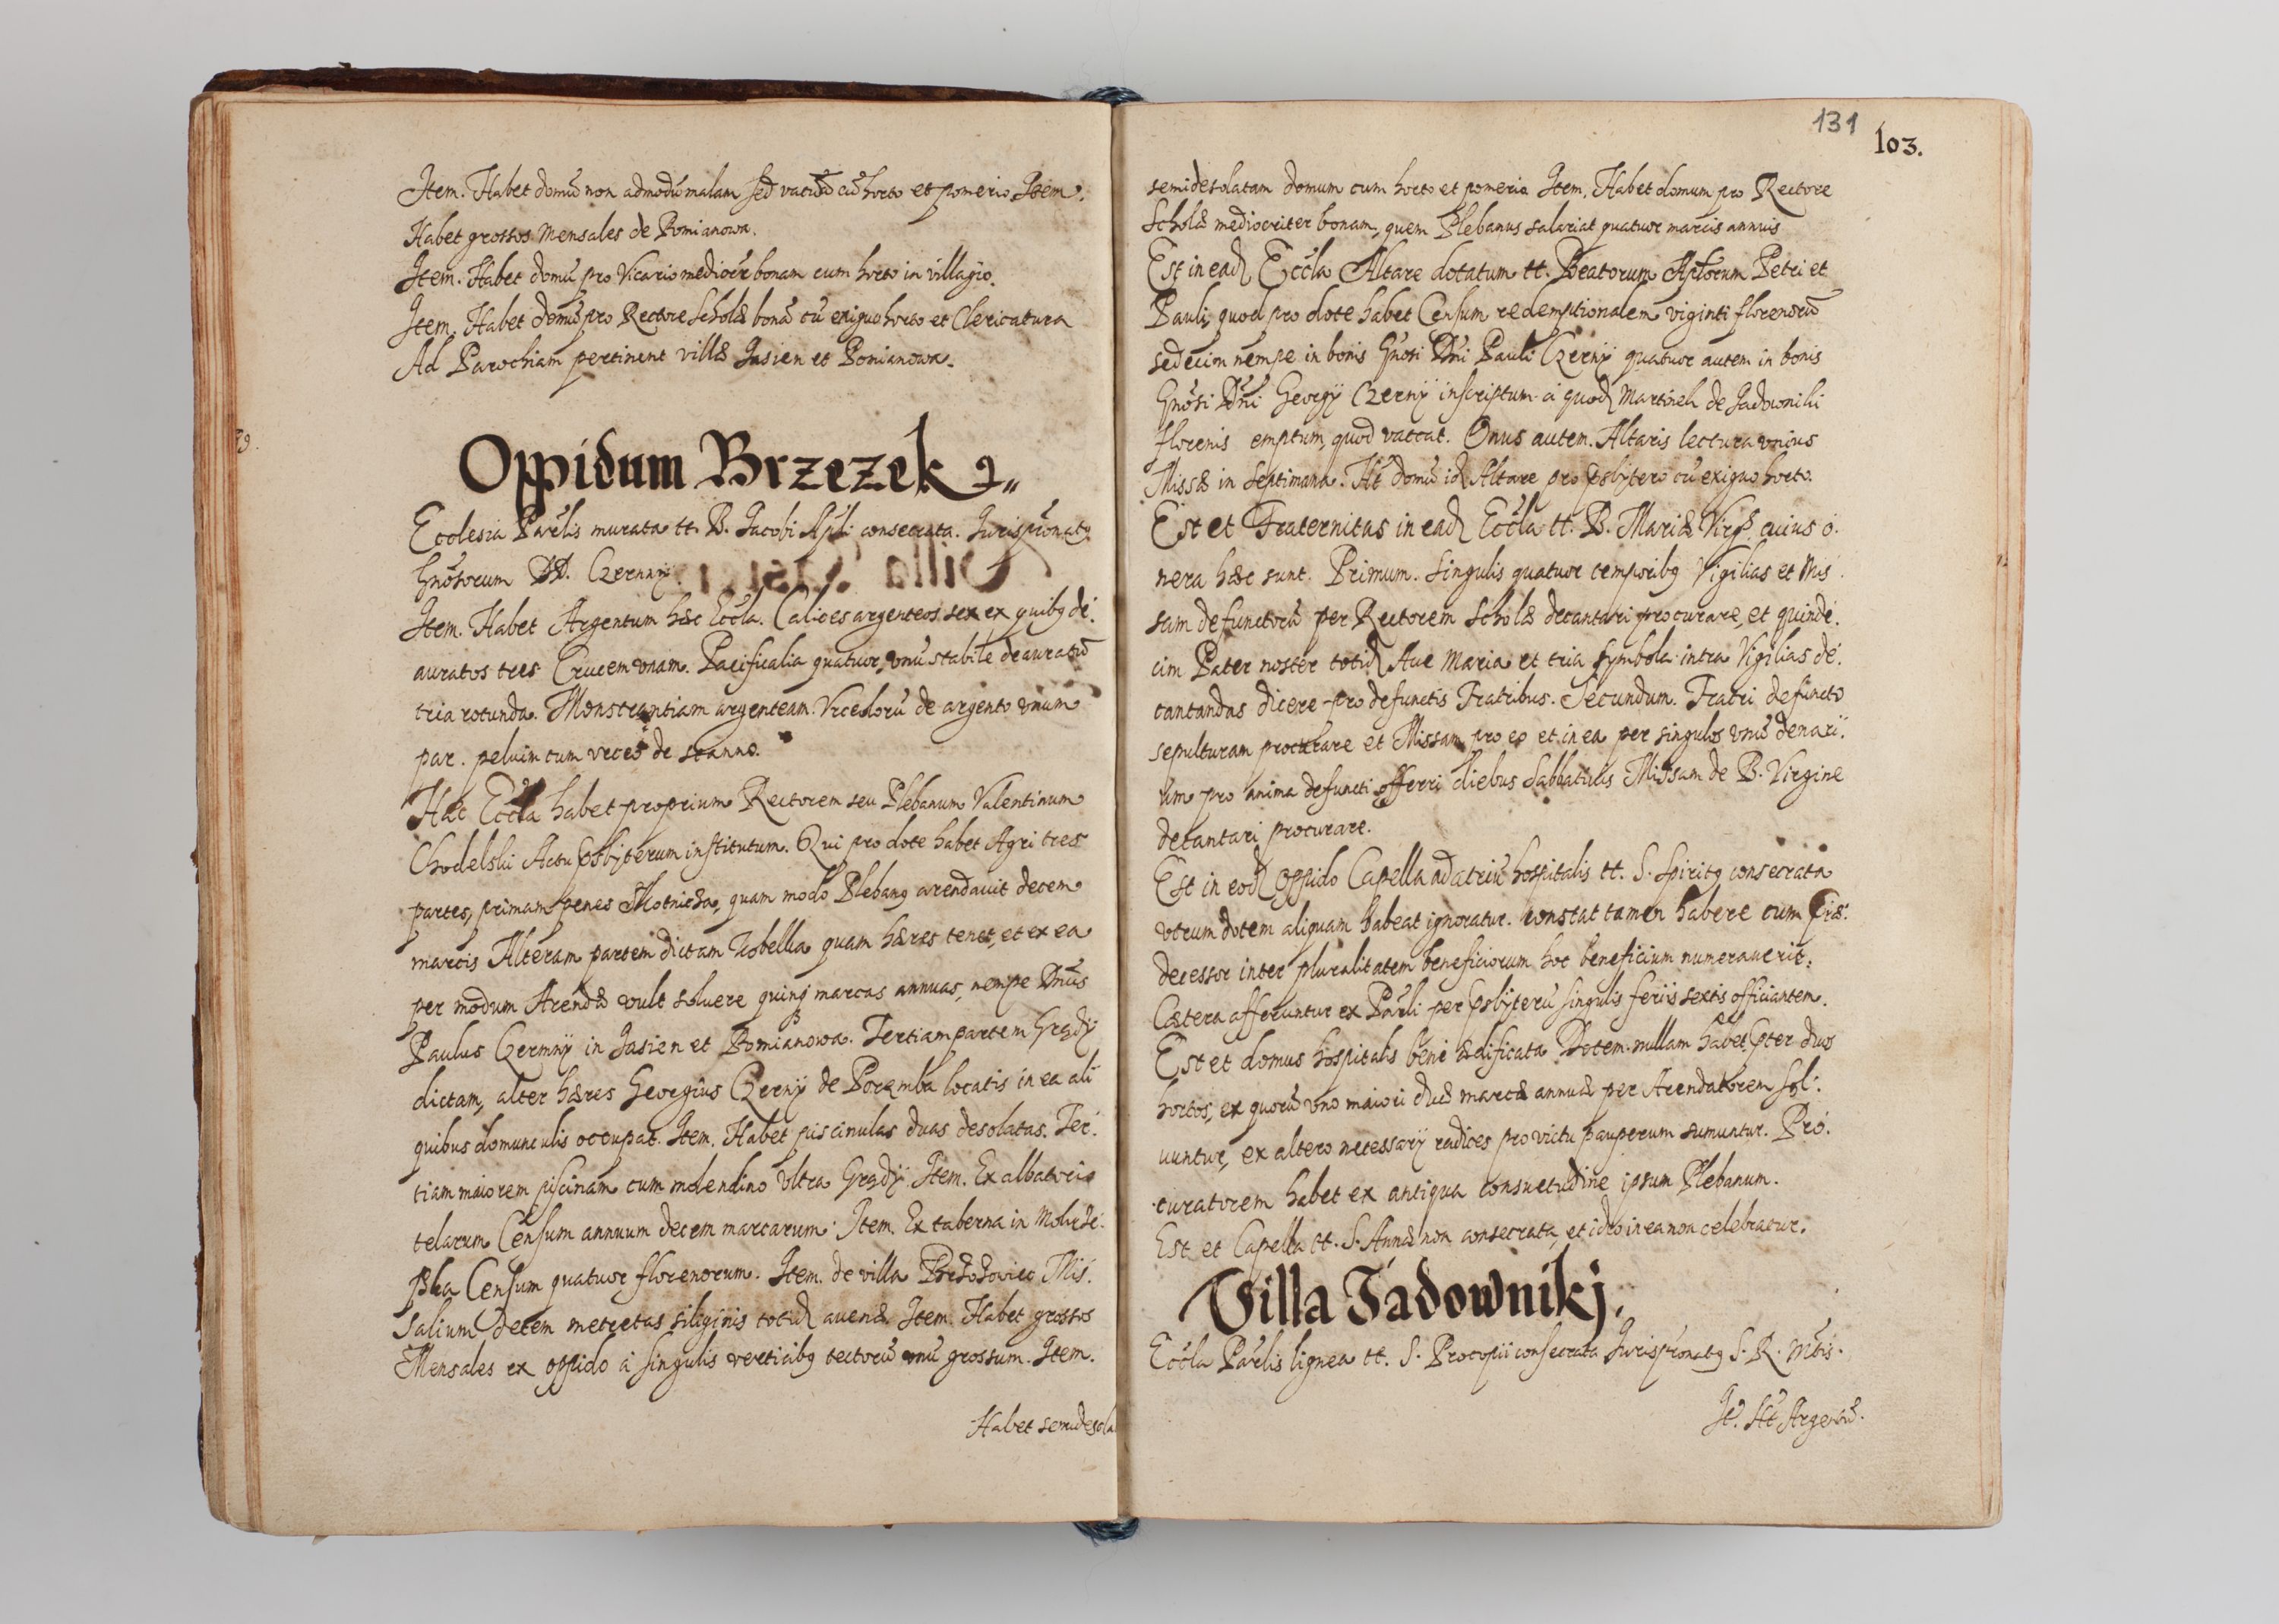 Item. Habet domū non admodū malam sed vacuā cū horto et pomerio Item.
Habet grossos mensales de Pomianowa.
Item. Habet domū pro Vicario mediocr̄ bonam cum horto in villagio.
Item. Habet domū pro Rectore Scholæ bonā cū exiguo horto et Clericatura
Ad Parochiam pertinent villæ Jasien et Pomianowa.
Oppidum Brzezek
Ecclesia Parēlis murata tt. B. Jacobi Apli consecrata. Jurispr̄onatꝰ
Gnōsorum DD. Czernÿ.
Item. Habet Argentum hæc Eccla. Calices argenteos sex ex quibꝰ de
auratos tres Crucem vnam. Pacificalia quatuor, vnū stabile deauratū
tria rotunda. Monstrantiam argenteam. Vrceolorū de argento vnum
par. peluim cum vrceo de stanno.
Hæc Eccla habet proprium Rectorem seu Plebanum Valentinum
Chodelski Actu Psbÿterum institutum. Qui pro dote habet Agri tres
partes, primam penes quam modo Plebanꝰ arendauit decem
marcis Alteram partem dictam quam hæres tenet, et ex ea
per modum Arendæ vult soluere quinq marcas annuas, nempe Dnūs
Paulus Czernÿ in Jasien et Pomianowa. Tertiam partem Grądÿ
dictam, alter hæres Georgius Czernÿ de Poremba locatis in ea ali
quibus domunculis occupat. Item. Habet piscinulas duas desolatas. Ter.
tiam maiorem piscinam cum molendino vltra Grądÿ. Item. Ex albatorio
telarum Censum annuum decem marcarum. Item. Ex taberna in
Censum quatuor florenorum. Item. de villa Mis.
salium decem metretas siliginis totid auenæ. Item. Habet grossos
Mensales ex oppido à singulis verticibꝰ tectorū vnū grossum. Item.
Habet semidesola
131
103.
semidesolatam domum cum horto et pomerio Item. Habet domum pro Rectore
Scholæ mediocriter bonam, quem Plebanus salariat quatuor marcis annuis
Est in ead Eccla Altare dotatum tt. Beatorum Aplorum Petri et
Pauli, quod pro dote habet Censum redemptionalem viginti florenorū
sedecim nempe in bonis Gnosi Dni Pauli Czernÿ quatuor autem in bonis
Gnōsi Dni Georgÿ Czernÿ inscriptum à quod Martineh de Jadowniki
florenis emptum, quod vaccat. Onus autem Altaris lectura vnius
Missæ in Septimana. Ht domū id Altare pro Psbÿtero cū exiguo horto.
Est et Fraternitas in ead Eccla tt. B. Mariæ Virg. cuius o.
nera hæc sunt. Primum. Singulis quatuor temporibꝰ Vigilias et Mis
sam defunctorū per Rectorem Scholæ decantari procurare, et quinde.
cim Pater noster totid Aue Maria et tria symbola intra Vigilias de.
cantandas dicere pro defunctis Fratribus. Secundum. Fratri defuncto
sepulturam procurare et Missam pro eo et in ea per singulos vnū denari.
um pro anima defuncti offerri diebus Sabbatinis Missam de B. Virgine
decantari procurare.
Est in eod Oppido Capella ad atriū hospitalis tt. S. Spiritꝰ consecrata
vtrum dotem aliquam habeat ignoratur. constat tamen habere cum Præ.
decessor inter pluralitatem beneficiorum hoc beneficium numerauerit.
Cætera afferuntur ex Parli per Psbÿterū singulis feriis sextis officiantem.
Est et domus hospitalis bene ædificata Dotem nullam habet Pter duos
hortos, ex quorū vno maiori duæ marcæ annuæ per Arendatorem sol.
uuntur, ex altero necessarÿ radices pro victu pauperum sumuntur. Pro.
curatorem habet ex antiqua consuetudine ipsum Plebanum.
Est et Capella tt. S. Annæ non consecrata, et ideo in ea non celebratur.
Villa Jadownikj.
Eccla Parēlis lignea tt. S. Procopii consecrata Jurispr̄onatꝰ S. R. Mtis.
It. Ht Argentū.